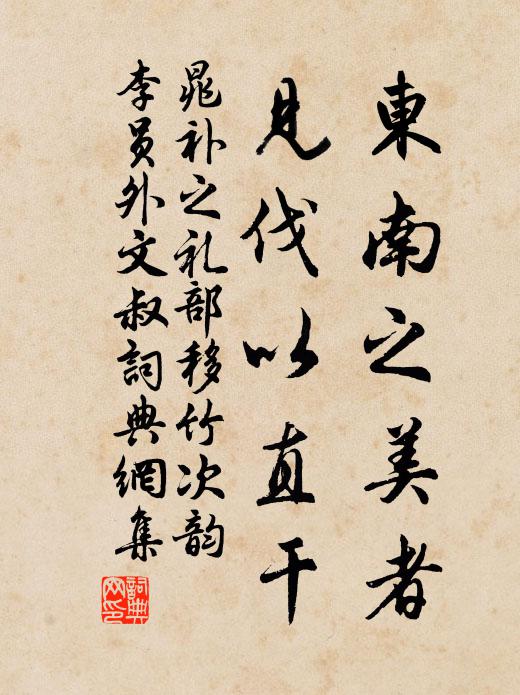 東南之美者
見伐以直干
晁补之礼部移竹次韵
李员外文叔詞典網集
詞典
网印